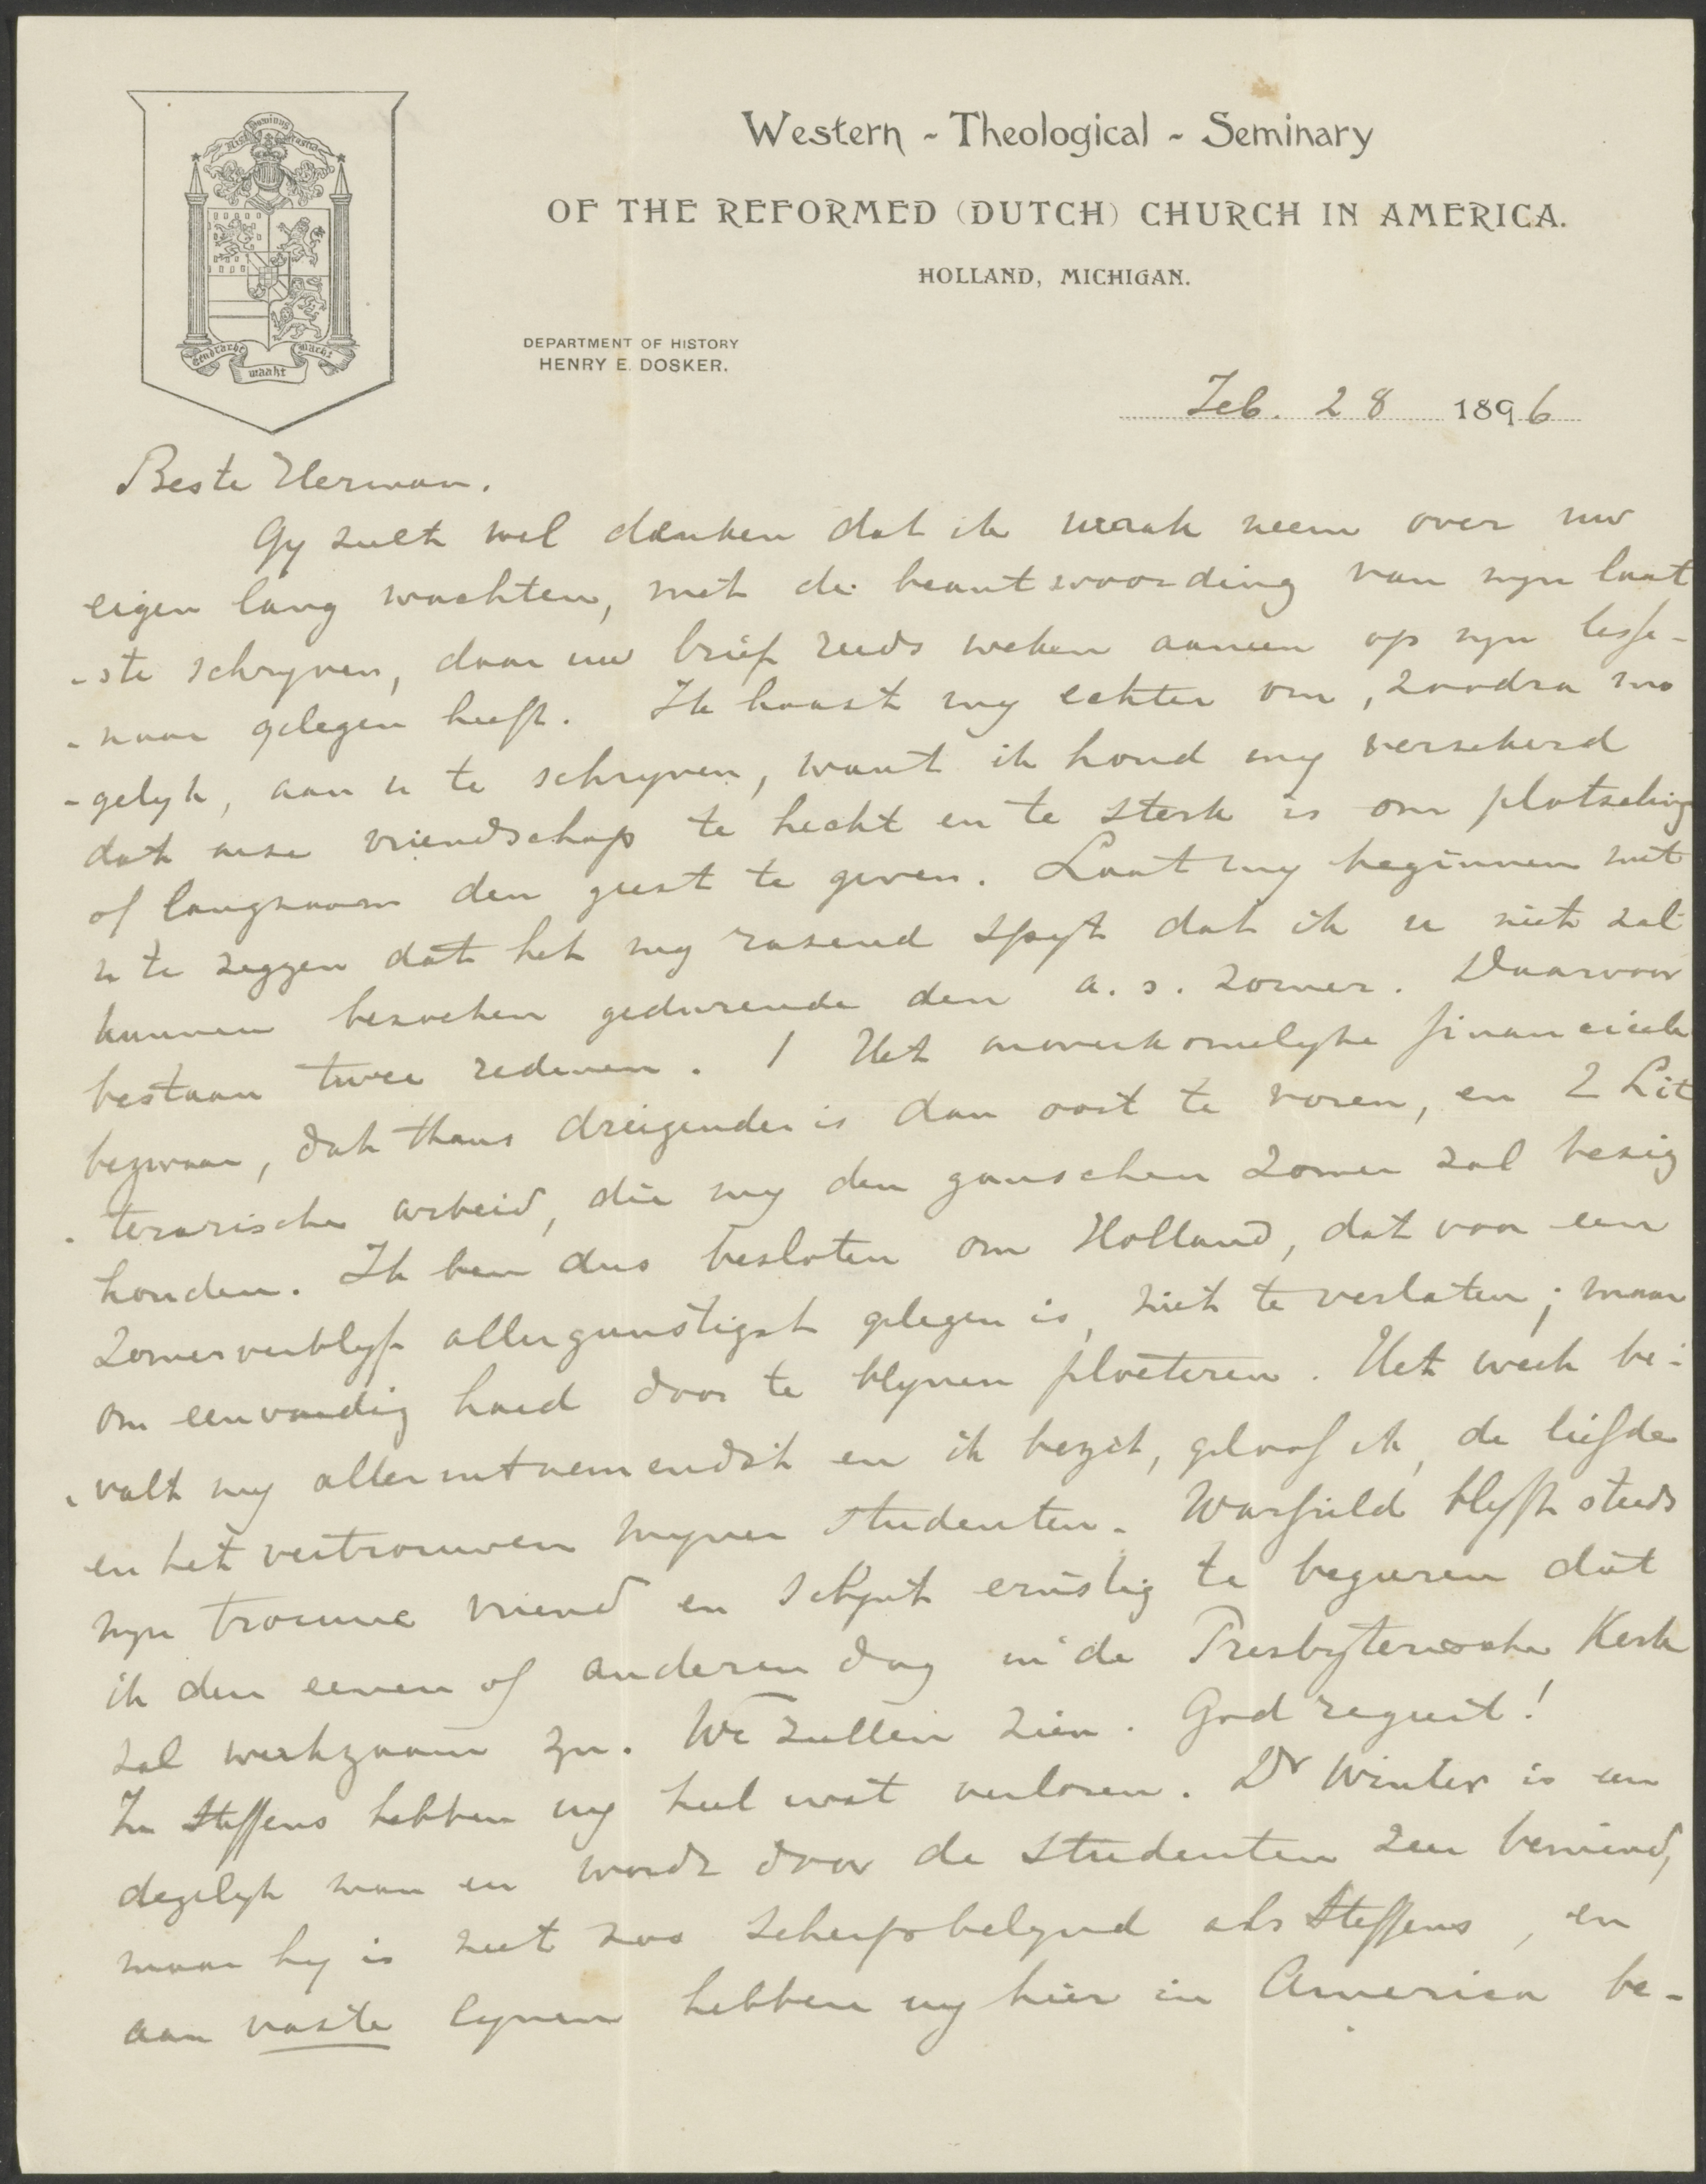 Nisi Dominus Frustra
Eendracht maakt macht
Western - Theological - Seminary
OF THE REFORMED (DUTCH) CHURCH IN AMERICA.
HOLLAND, MICHIGAN.
DEPARTMENT OF HISTORY
HENRY E. DOSKER.
Feb. 28 1896
Beste Herman.
Gy zult wel denken dat ik wraak neem over uw
eigen lang wachten, met de beantwoording van myn laat
-ste schryven, daar uw brief reeds weken aaneen op myn lesse-
-naar gelegen heeft. Ik haast my echter om, zoodra mo
-gelyk, aan u te schryven, want ik houd my verzekerd
dat onze vriendschap te hecht en te sterk is om plotseling
of langzaam den geest te geven. Laat my beginnen met
u te zeggen dat het my razend spyt dat ik u niet zal
kunnen bezoeken gedurende den a.s. zomer. Daarvoor
bestaan twee redenen. 1 Het onoverkomelyke financieele
bezwaar, dat thans dreigender is dan ooit te voren, en 2 Lit
-terarische arbeid, die my den ganschen zomer zal bezig
houden. Ik ben dus besloten om Holland, dat voor een
zomerverblyf allergunstigst gelegen is, niet te verlaten; maar
om eenvoudig hard door te blyven ploeteren. Het werk be-
-valt my alleruitnemendst en ik bezit, geloof ik, de liefde
en het vertrouwen myner studenten. Warfield blyft steeds
myn trouwe vriend en schynt ernstig te begeeren dat
ik den eenen of anderen dag in de Presbyteriaansche Kerk
zal werkzaam zyn. We zullen zien. God regeert!
In Steffens hebben wy heel wat verloren. Dr Winter is een
degelyk man en wordt door de studenten zeer bemind,
maar hy is niet zoo scherpbelynd als Steffens, en
aan vaste lynen hebben wy hier in America be-